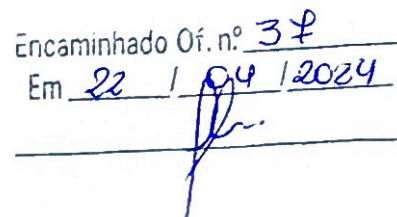 Encaminhado Of. n.º 37
Em 22 / 04 / 2024